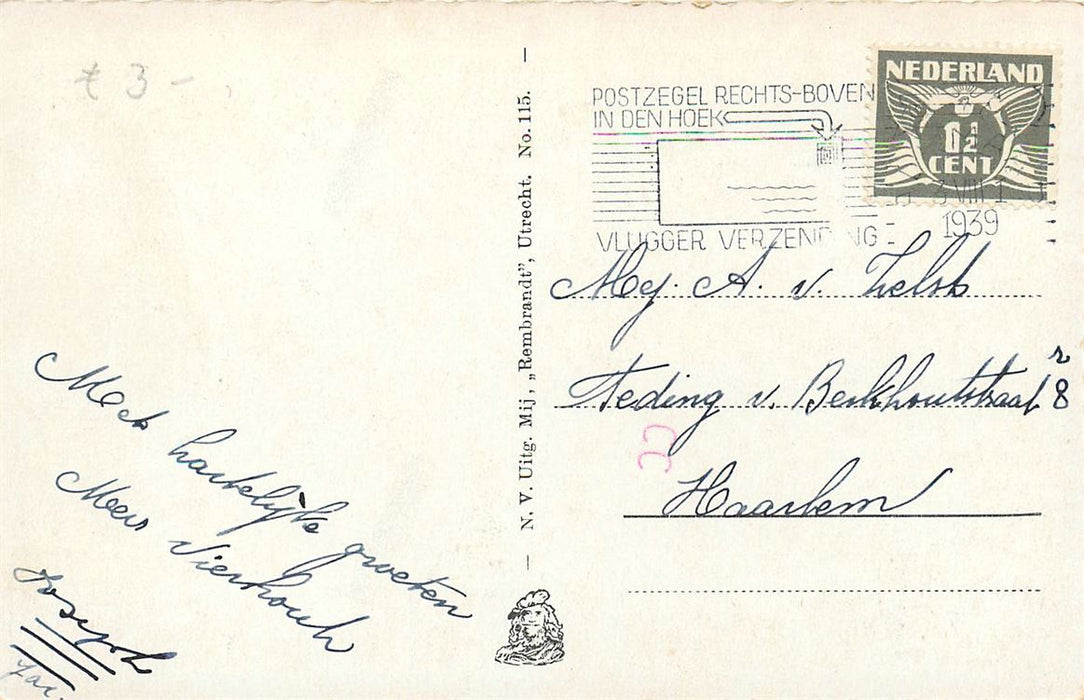 € 3 -
POSTZEGEL RECHTS-BOVEN
IN DEN HOEK
VLUGGER VERZENDING
NEDERLAND
6½
CENT
3 VIII
1939
Mej. A. v. Zelst
Teding v. Berkhoutstraat 8 r
Haarlem
N. V. Uitg. Mij. „Rembrandt", Utrecht. No. 115.
Met hartelijke groeten
Mevr Vierhout
Joseph